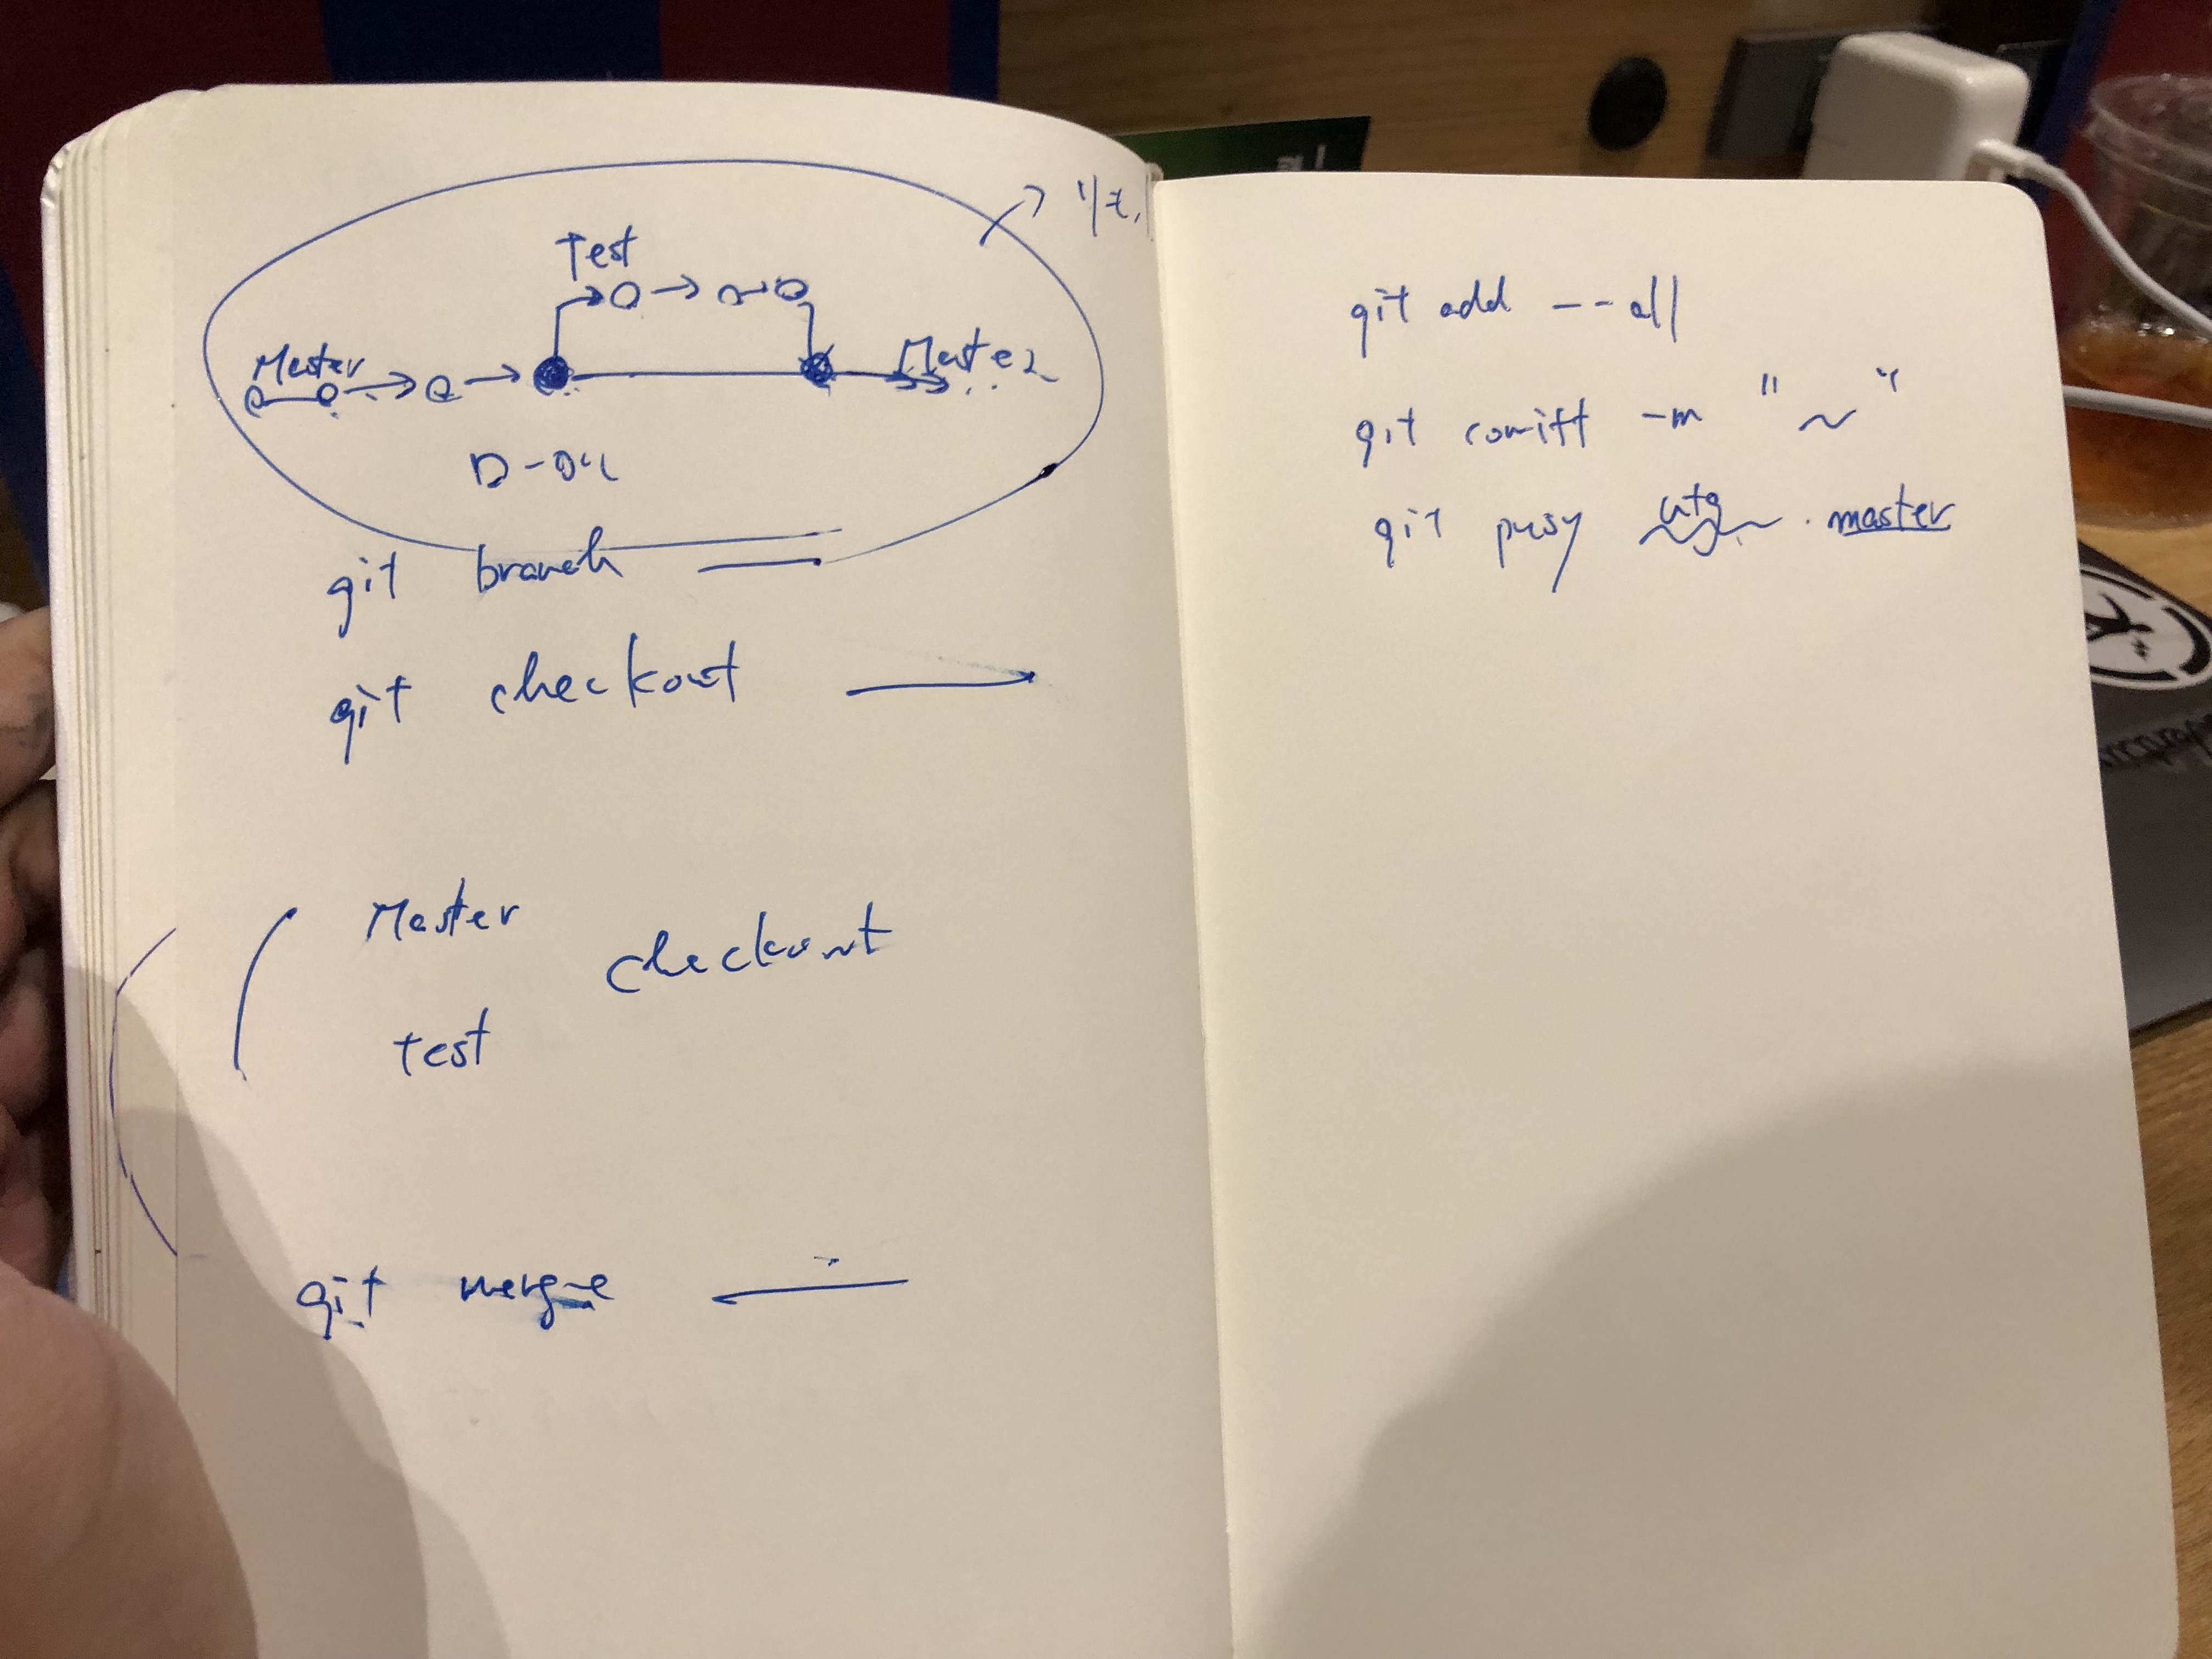 Test
Master
git branch
git checkout
Master
checkout
test
git merge
git add --all
git comitt -m "~"
git master